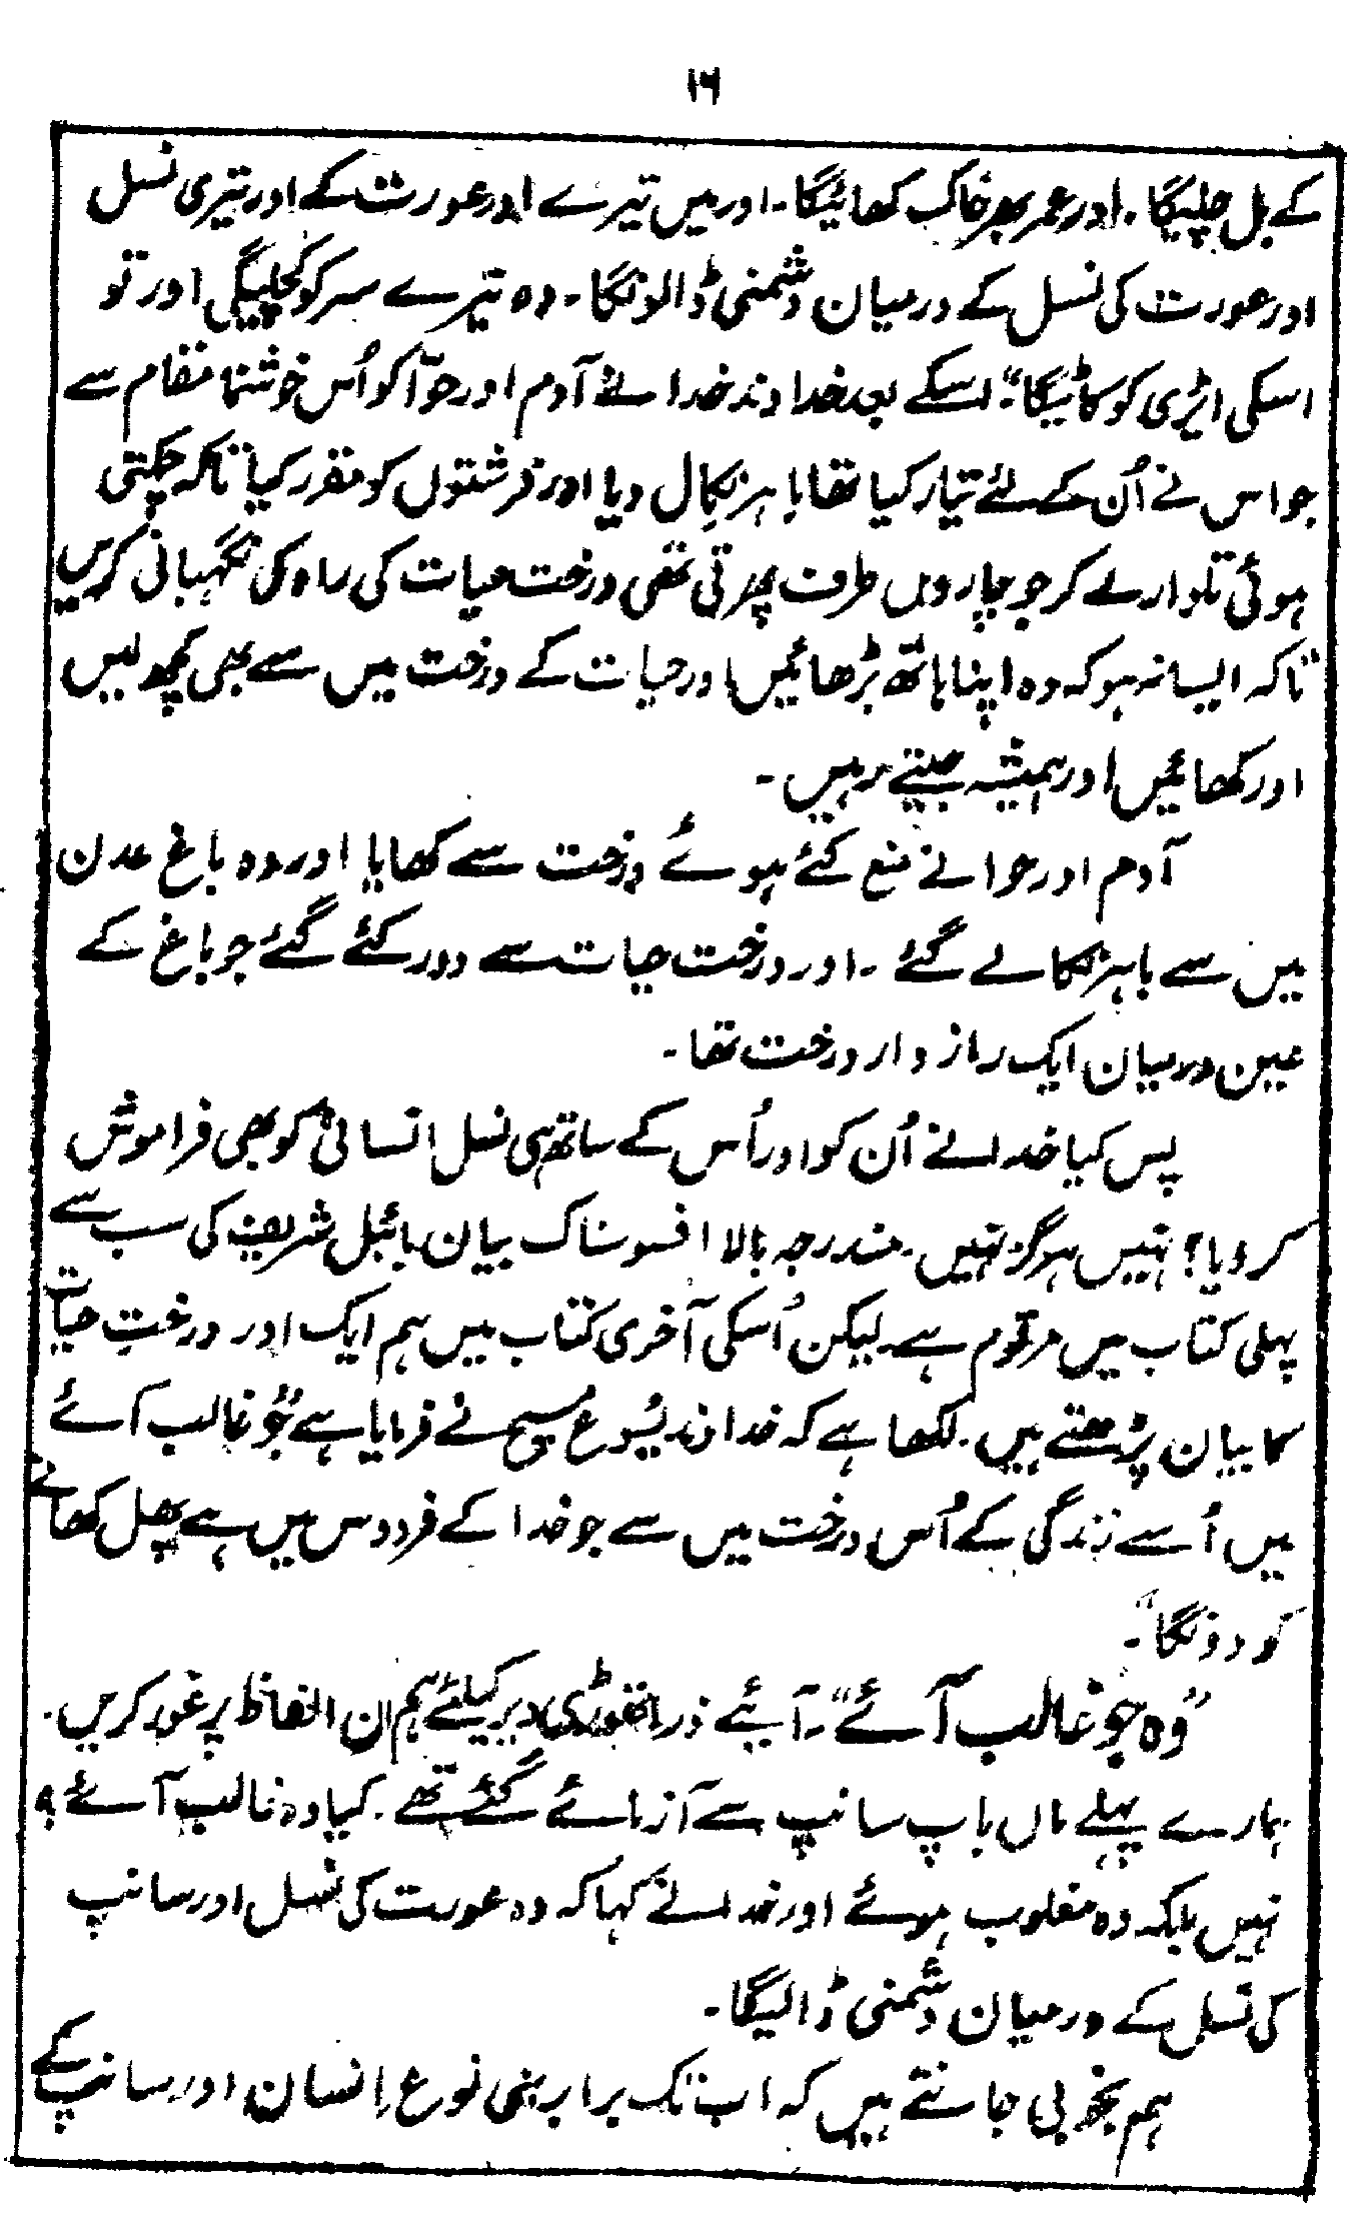 ۱۶
کے بل چلیگا ۔ اور عمر بھر خاک کھائیگا ۔ اور میں تیرے اور عورت کے اور تیری نسل
اور عورت کی نسل کے درمیان دشمنی ڈالونگا ۔ وہ تیرے سر کو کچلیگی اور تو
اسکی ایڑی کو کاٹیگا"۔ اسکے بعد خداوند خدا نے آدم اور حوّا کو اُس خوشنما مقام سے
جو اس نے اُن کے لئے تیار کیا تھا باہر نکال دیا اور فرشتوں کو مقرر کیا تاکہ چمکتی
ہوئی تلوار لے کر جو چاروں طرف پھرتی تھی درخت حیات کی راہ کی نگہبانی کریں
"تاکہ ایسا نہ ہو کہ وہ اپنا ہاتھ بڑھائیں اور حیات کے درخت میں سے بھی کچھ لیں
اور کھائیں اور ہمیشہ جیتے رہیں ۔
آدم اور حوا نے منع کئے ہوئے درخت سے کھایا اور وہ باغ عدن
میں سے باہر نکالے گئے ۔ اور درخت حیات سے دور کئے گئے جو باغ کے
عین درمیان ایک راز دار درخت تھا ۔
پس کیا خدا نے اُن کو اور اُس کے ساتھ ہی نسل انسانی کو بھی فراموش
کر دیا؟ نہیں ہرگز نہیں ۔ مندرجہ بالا افسوسناک بیان بائبل شریف کی سب سے
پہلی کتاب میں مرقوم ہے۔ لیکن اُسکی آخری کتاب میں ہم ایک اور درختِ حیات
کا بیان پڑھتے ہیں ۔ لکھا ہے کہ خداوند یسُوع مسیح نے فرمایا ہے "جو غالب آئے
میں اُسے زندگی کے اُس درخت میں سے جو خدا کے فردوس میں ہے پھل کھانے
کو دونگا"۔
"وُہ جو غالب آئے"۔ آیئے ذرا تھوڑی دیر کیلئے ہم ان الفاظ پر غور کریں ۔
ہمارے پہلے ماں باپ سانپ سے آزمائے گئے تھے ۔ کیا وہ غالب آئے؟
نہیں بلکہ وہ مغلوب ہوئے اور خدا نے کہا کہ وہ عورت کی نسل اور سانپ
کی نسل کے درمیان دشمنی ڈالیگا ۔
ہم بخوبی جانتے ہیں کہ اب تک برابر بنی نوع اِنسان اور سانپ کے